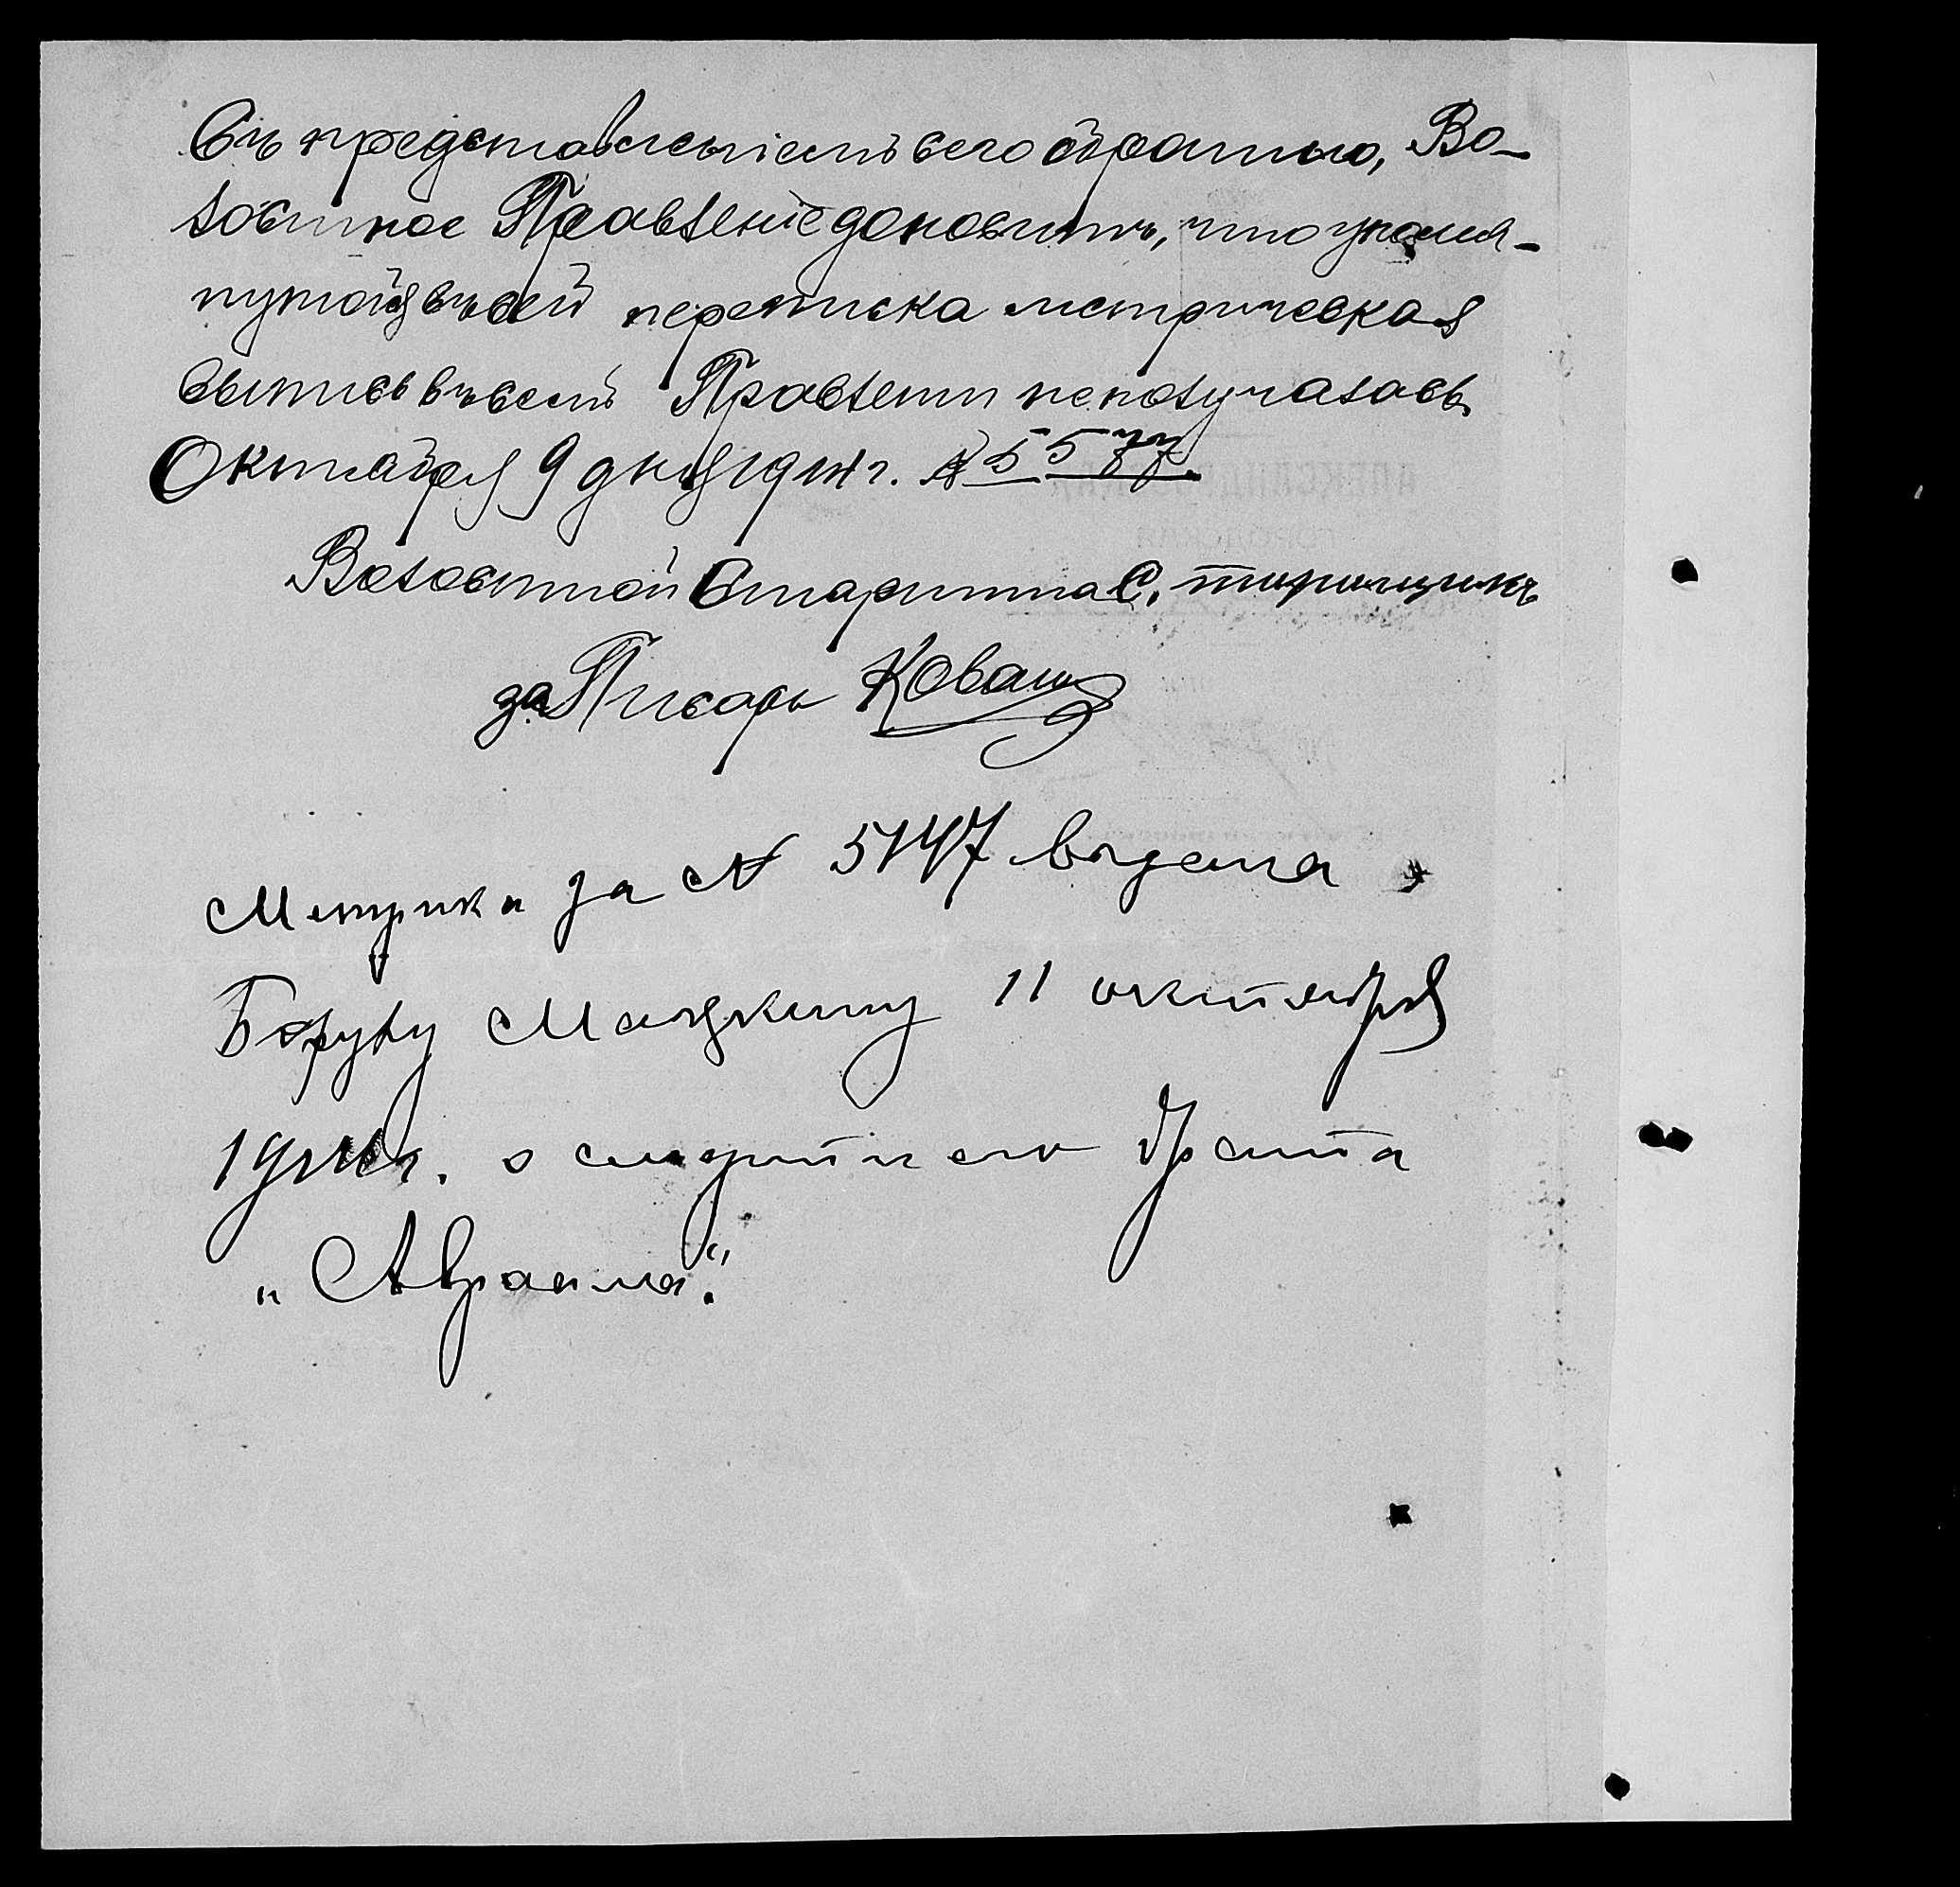 Съ представленіемъ сего обратно, Во-
лостное Правленіе доноситъ, что упомя-
нутой въ сей переписка метрическая
выпись въ семъ Правлении не получалась
Октября 9 дня 1914 г. № 5577.
Волостной Старшина С.
за Писарь Коваш
Метрика за № 5147 выдана
Боруху Маязкину 11 октября
1914 г. о смерти его брата
"Авраама".